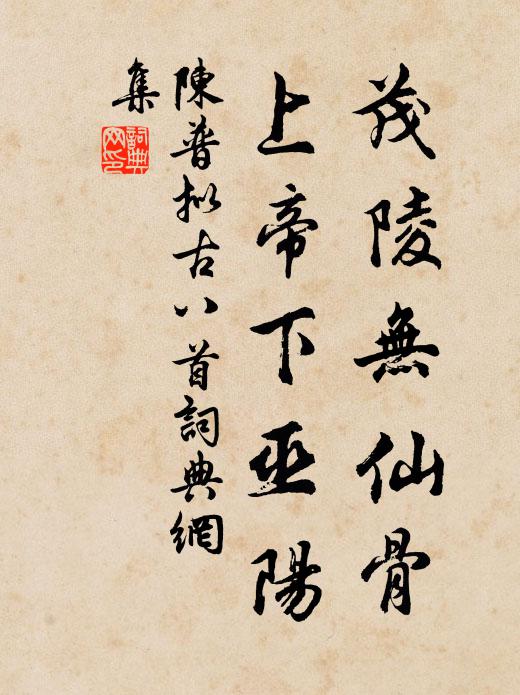 茂陵無仙骨
上帝下巫陽
陳普拟古八首詞典網
集
詞典
网印